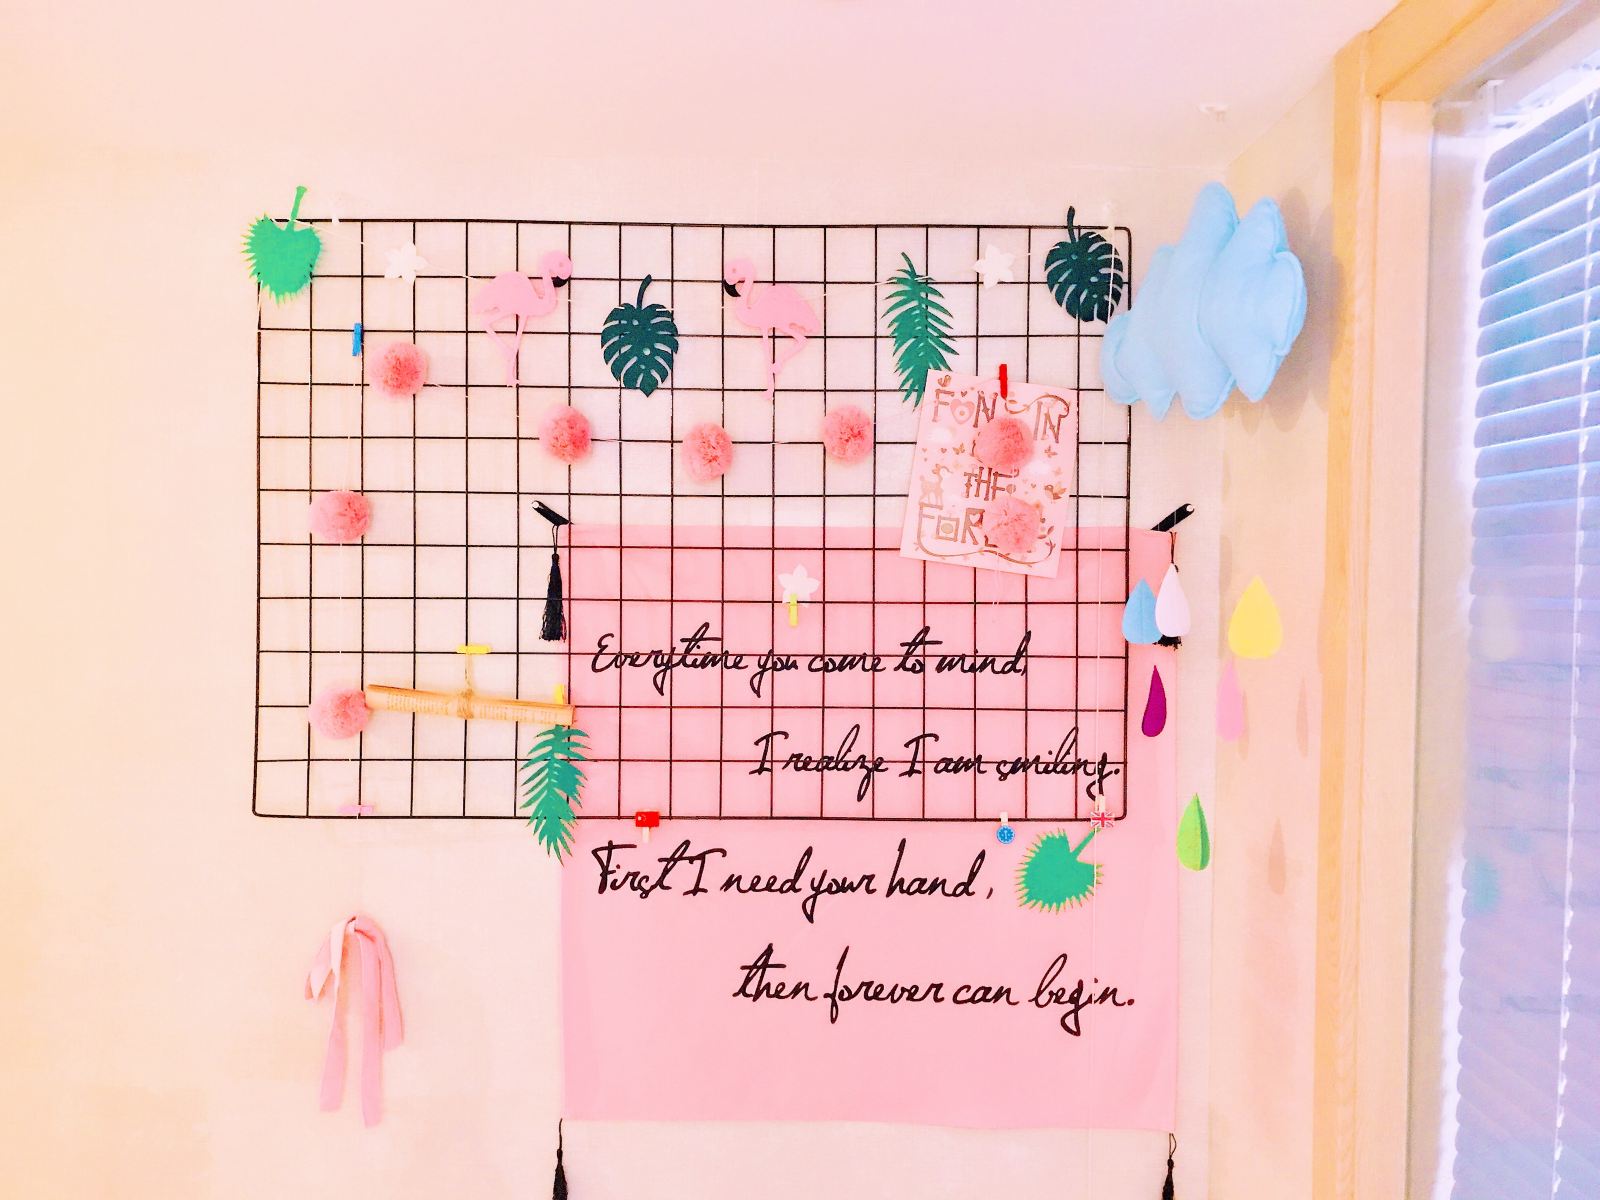 FUN IN
THE
FOR
Everytime you come to mind,
I realize I am smiling.
First I need your hand,
then forever can begin.